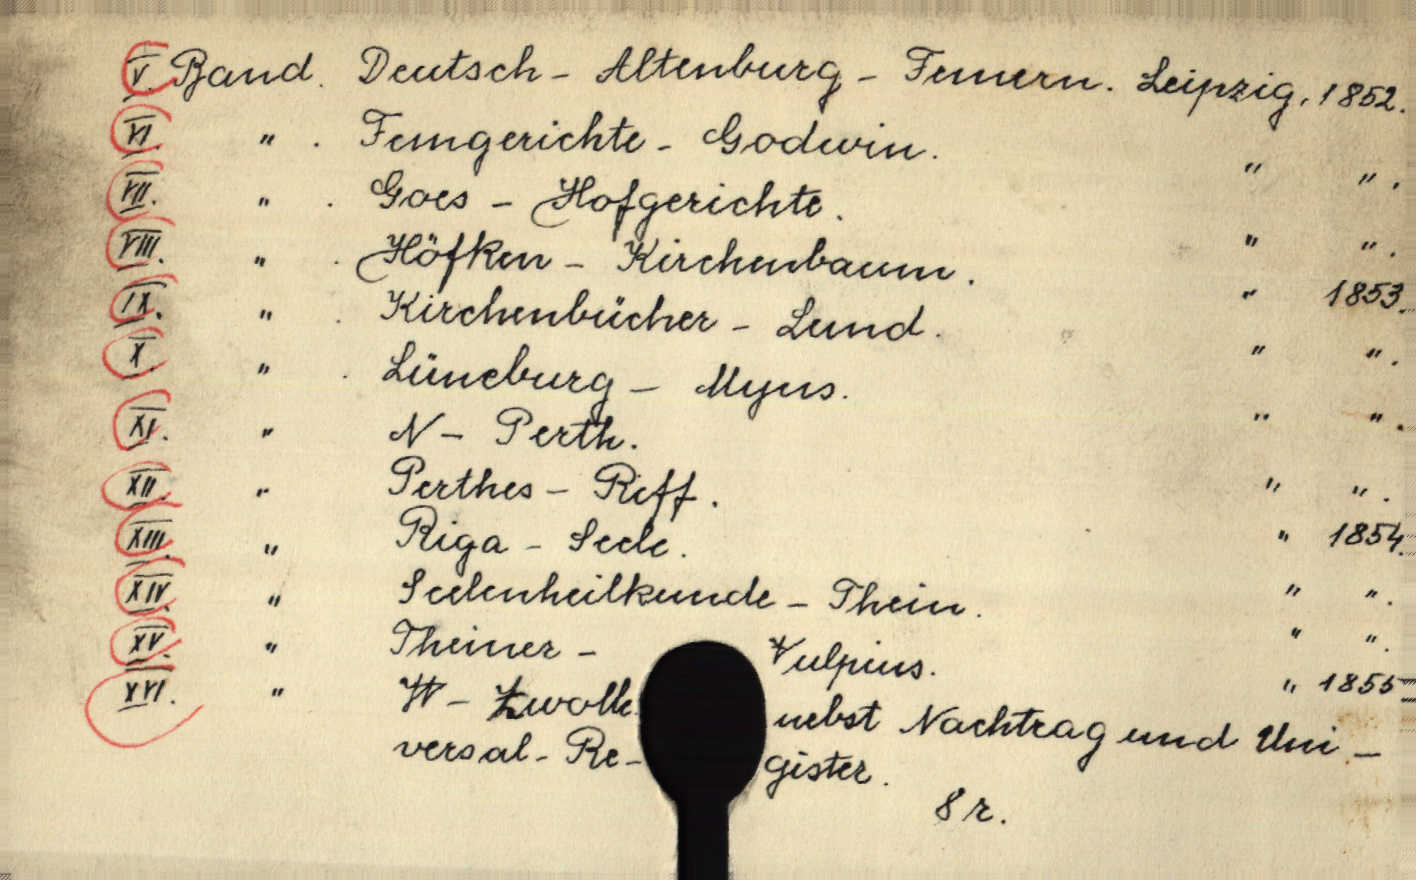 V. Band. Deutsch - Altenburg - Femern. Leipzig, 1852.
VI. " . Femgerichte - Godwin. " " .
VII. " . Goes - Hofgerichte. " " .
VIII. " . Höfken - Kirchenbaum. " 1853.
IX. " . Kirchenbücher - Lund. " " .
X. " . Lüneburg - Myus. " " .
XI. " N - Perth. " " .
XII. " Perthes - Riff. " 1854.
XIII. " Riga - Seele. " " .
XIV. " Seelenheilkunde - Thein. " " .
XV. " Theiner - Vulpius. " 1855
XVI. " W - Zwolle nebst Nachtrag und Uni-
versal-Re-gister.
8 r.